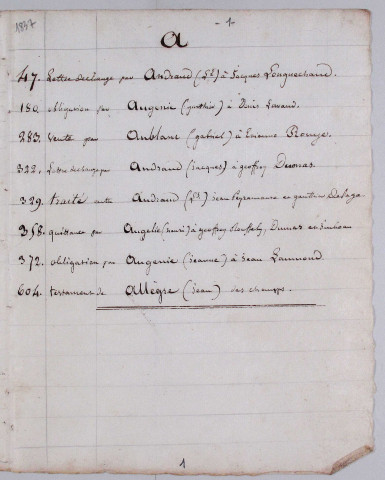 1837
- 1 -
A
47. Lettre d'echange par Andraud (Pre) à Jacques Longuechaud.
180. obligation par Augenie (gonthier) à Denis
283. Vente par Aublanc (gabriel) à Etienne Rouze.
322. Lettre dechange par Andraud (Jacques) à geoffroy Dumas.
329. traité entre Andraud (Pre) Jean Peyramaure et gauthier Delage
358. quittance par Augelle (henri) à geoffroy Dumas
372. obligation par Augenie (jeanne) à Jean Laumond.
604. testament de Allègre (Jean) des champs.
1